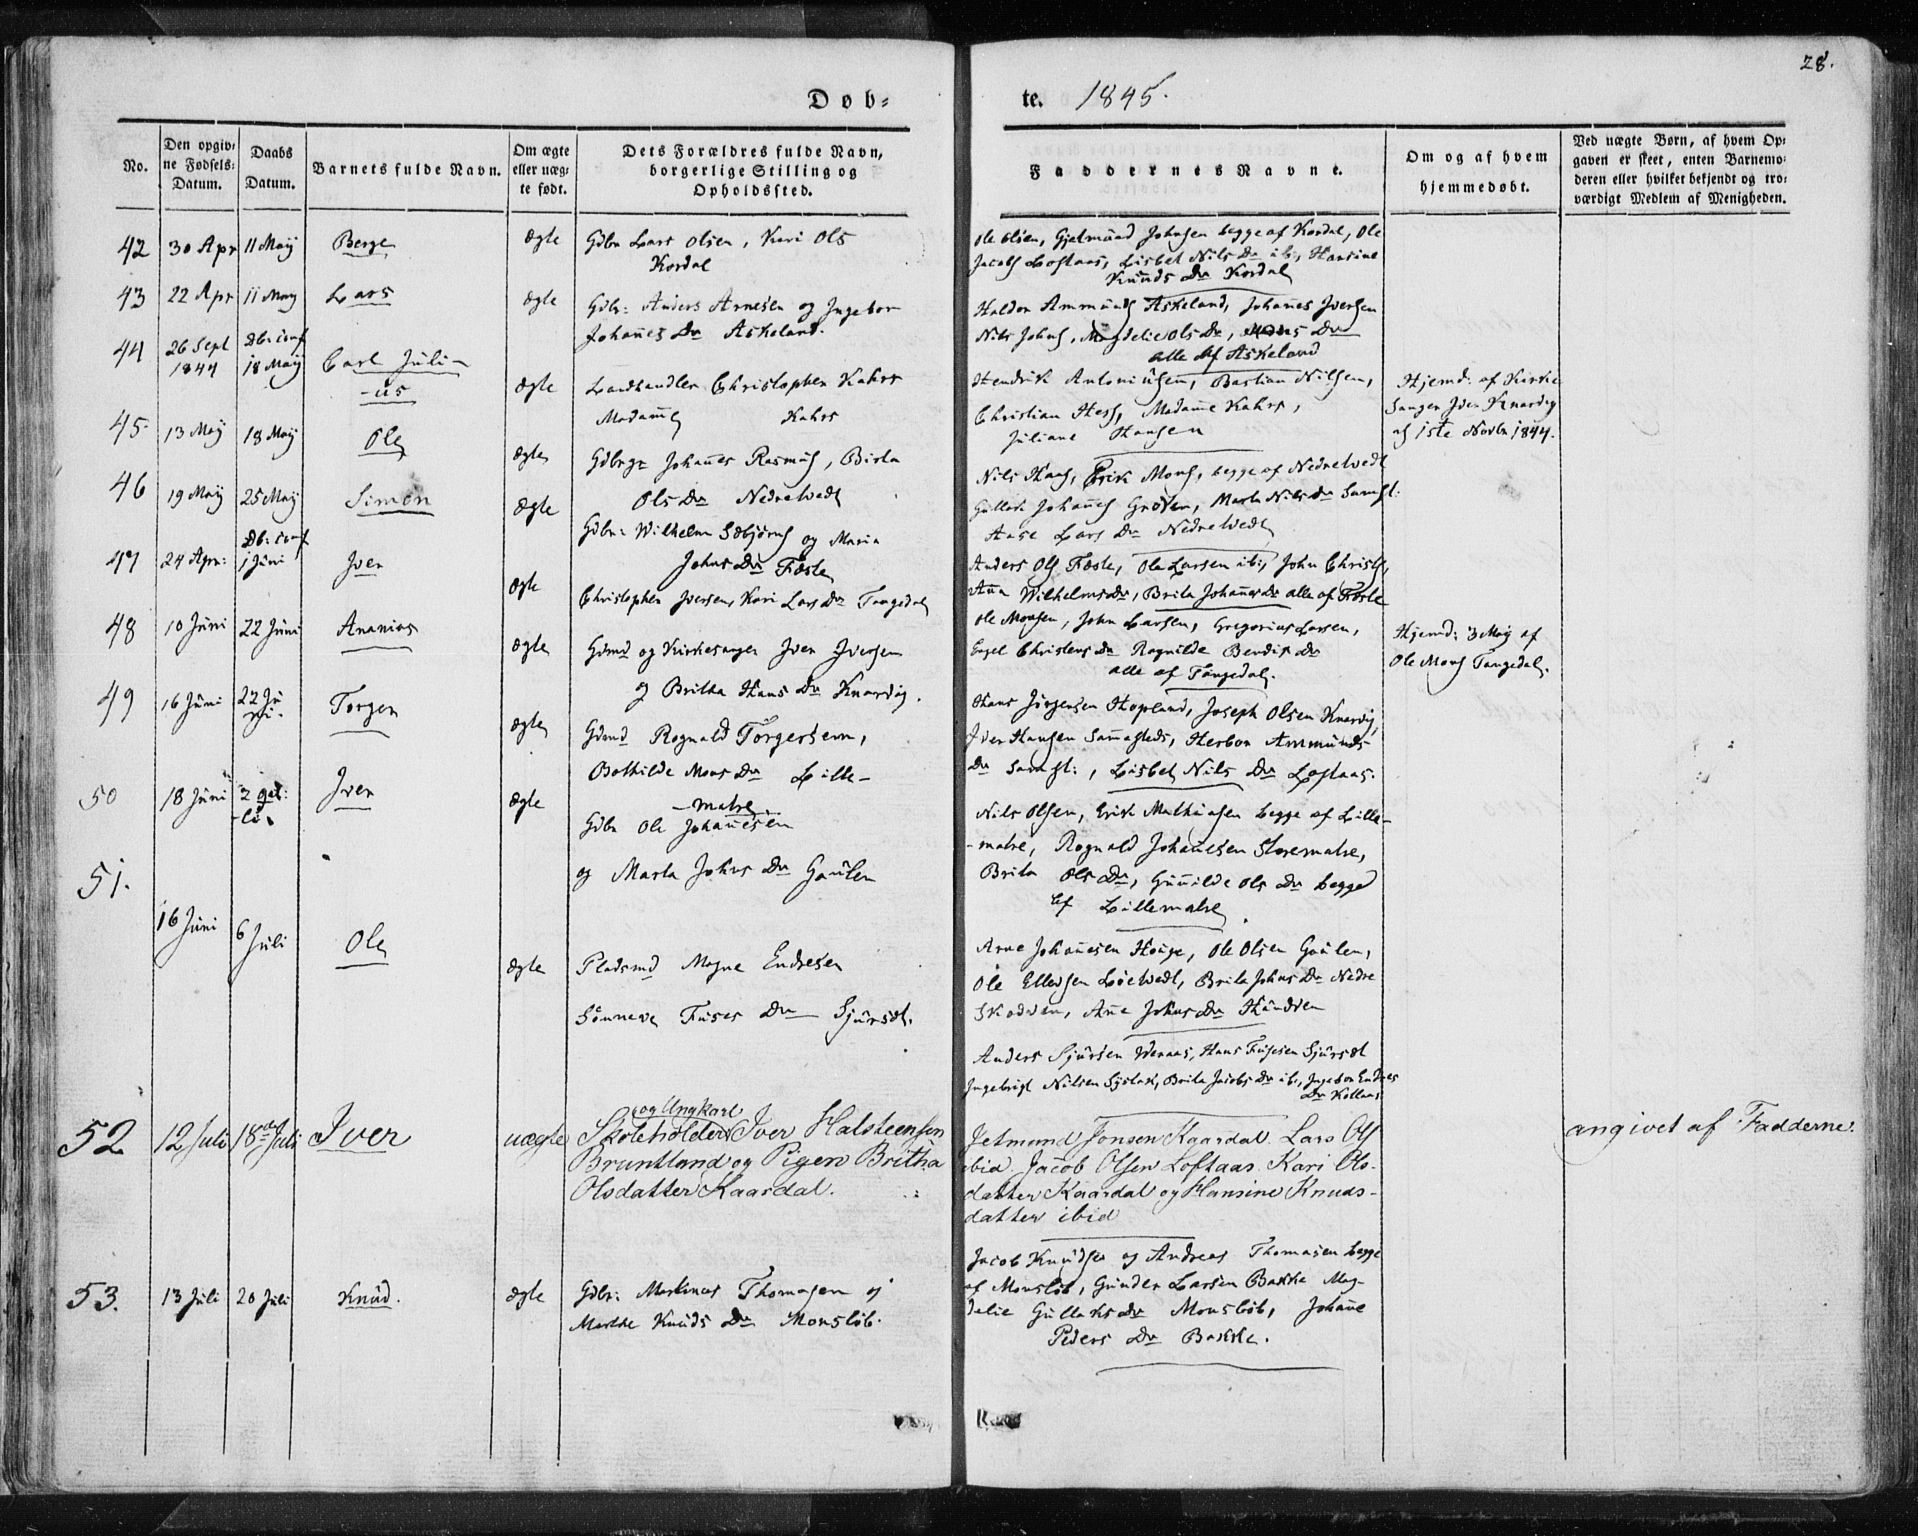 28.
Døb-
te. 1845.
No.
Den opgiv-
ne Fødsels-
Datum.
Daabs
Datum.
Barnets fulde Navn.
Om ægte
eller uæg-
te født.
Dets Forældres fulde Navn,
borgerlige Stilling og
Opholdssted.
Faddernes Navne.
Om og af hvem
hjemmedøbt.
Ved uægte Børn, af hvem Op-
gaven er skeet, enten Barnemo-
deren eller hvilket bekjendt og tro-
værdigt Medlem af Menigheden.
42 30 Apr 11 Maij Berge ægte Gdbr Lars Olsen, Kari Ols
Kordal
Ole Olsen, Gjetmund Johnsen begge af Kordal, Ole
Jacobs Loftaas, Lisbet Nils Dr ib:, Hansine
Knuds Dr Kordal
43 22 Apr 11 May Lars ægte Gdbr: Anders Arnesen og Ingebor
Johañes Dr Askeland.
Haldor Ammunds Askeland, Johañes Iversen
Nils Johns, Magdelie Ols Dr, Mons Dr
alle af Askeland
44 26 Sept
1844
Db: conf
18 Maij
Carl Juli-
-us
ægte Landhandler Christopher Kahrs
Madame Kahrs
Hendrik Antoniusen, Bastian Nilsen,
Christian Hess, Madame Kahrs,
Juliane Hansen
Hjemd: af Kirke
Sanger Iver Knarvig
af 1ste Novbr 1844.
45. 13 Maij 18 Maij Ole ægte Gdbrgr Johañes Rasmus, Birta
Ols Dr Nedretvedt
Nils Haas, Erik Mons, begge af Nedretvedt
Gullak Johañes Grøten, Marta Nils Dr Samst.
Aase Lars Dr Nedretvedt
46 19 Maij 25 Maij Simon ægte Gdbr: Wilhelm Sæbjørns og Maria
Johns Dr Fæste
Anders Ols Fæste, Ole Larsen ib:, John Christs,
Aña Wilhelms Dr, Brita Johañes Dr alle af Fæste
47 24 Apr: Db: conf
1 Juni
Iver ægte Christopher Iversen, Kari Lars Dr Tangedal
Ole Monsen, John Larsen, Gregorius Larsen,
Engel Christens Dr Ragnilde Bendix Dr
alle af Tangedal.
Hjemd: 3 Maij af
Ole Mons Tangedal.
48 10 Juni 22 Juni Ananias ægte Gdmd og Kirkesanger Iver Iversen
og Britha Hans Dr Knarvig.
Hans Jørgensen Hopland, Joseph Olsen Knarvig,
Iver Hansen Samesteds, Herbor Ammunds
Dr Samst:, Lisbet Nils Dr Loftaas.
49 16 Juni 22 Ju
ni.
Torger ægte Gdmd Rognald Torgersen,
Bothilde Mons Dr Lille-
-matre
Nils Olsen, Erik Mathiasen begge af Lille-
-matre, Rognald Johañesen Storematre,
Brita Ols Dr, Guñilde Ols Dr begge
af Lillematre
50 18 Juni Iver ægte Gdbr Ole Johañesen
og Marta Johns Dr Gaulen
Arne Johañesen Houge, Ole Olsen Gaulen,
Ole Ellevsen Løetvedt, Brita Johns Dr Nedre
Skodven, Añe Johns Dr Haudven
51. 16 Juni 6 Juli Ole ægte Pladsmd Magne Endresen
Sønneve Fuses Dr Sjursæt.
Anders Sjursen Wenaas, Hans Fusesen Sjursæt
Ingebrigt Nilsen Systad, Brita Jacobs Dr ib:, Ingebor Endres
Dr Kollaas
52 12 Juli 18de Juli Iver uægte og Ungkarl
Skoleholder Iver Halsteensen
Bruntland og Pigen Britha
Olsdatter Kaardal.
Jetmund Jonsen Kaardal. Lars Ols
ibid. Jacob Olsen Loftaas. Kari Ols-
datter Kaardal og Hansine Knuds-
datter ibid
angivet af Fadderne.
53. 13 Juli 20 Juli Knud. ægte Gdbr: Martinus Thomasen og
Marthe Knuds Dr Monsløb.
Jacob Knudsen og Andreas Thomasen begge
af Monsløb, Gunder Larsen Bakke Mag-
delie Gullaks Dr Monsløb, Johañe
Peders Dr Bakke.